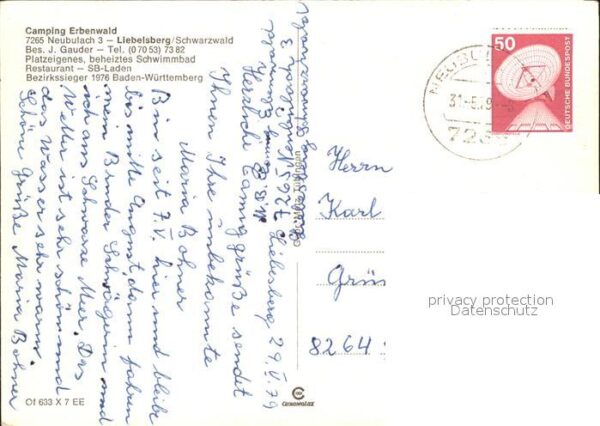 Camping Erbenwald
7265 Neubulach 3 – Liebelsberg/Schwarzwald
Bes. J. Gauder – Tel. (0 70 53) 73 82
Platzeigenes, beheiztes Schwimmbad
Restaurant – SB-Laden
Bezirkssieger 1976 Baden-Württemberg
7265
Liebelsberg 29.V.79
Herzliche Campinggrüße sendet
Ihnen Ihre unbekannte
Maria Bohner
Bin seit 7.V. hier und bleibe
bis mitte August dann fahren
mein Bruder Schwägerin und
ich ans Schwarze Meer. Das
Wetter ist sehr schön und
das Wasser sehr warm
Schöne Grüße Maria Bohner
Of 633 X 7 EE
CEKOMALUX
50
DEUTSCHE BUNDESPOST
Herrn
Karl
Grüs
8264
privacy protection
Datenschutz